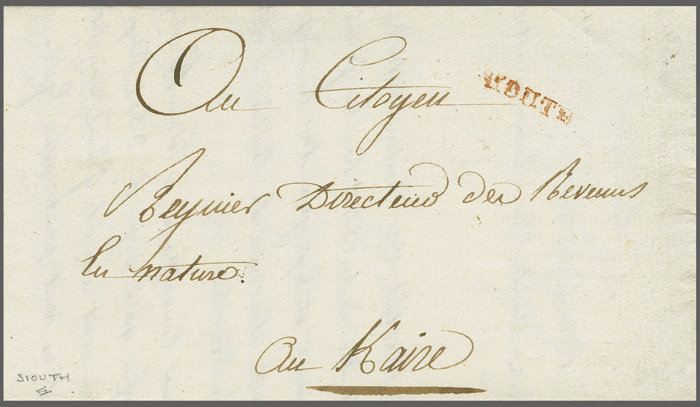 Au Citoyen
SIOUTH
Reynier Directeur des Revenus
En nature.
Au Kaire
SIOUTH